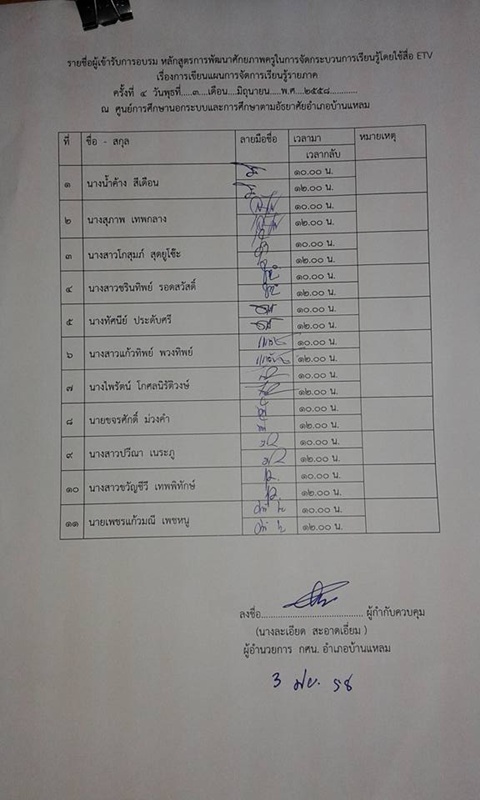 รายชื่อผู้เข้ารับการอบรม หลักสูตรการพัฒนาศักยภาพครูในการจัดกระบวนการเรียนรู้โดยใช้สื่อ ETV
เรื่องการเขียนแผนการจัดการเรียนรู้รายภาค
ครั้งที่ ๔ วันพุธที่.....๓....เดือน....มิถุนายน.....พ.ศ....๒๕๕๘...........
ณ ศูนย์การศึกษานอกระบบและการศึกษาตามอัธยาศัยอำเภอบ้านแหลม
ที่ ชื่อ - สกุล ลายมือชื่อ เวลามา หมายเหตุ
เวลากลับ
๑ นางน้ำค้าง สีเดือน ๑๐.๐๐ น.
๑๒.๐๐ น.
๒ นางสุภาพ เทพกลาง ๑๐.๐๐ น.
๑๒.๐๐ น.
๓ นางสาวโกสุมภ์ สุดยูโซ๊ะ ๑๐.๐๐ น.
๑๒.๐๐ น.
๔ นางสาวชรินทิพย์ รอดสวัสดิ์ ๑๐.๐๐ น.
๑๒.๐๐ น.
๕ นางทัศนีย์ ประดับศรี ๑๐.๐๐ น.
๑๒.๐๐ น.
๖ นางสาวแก้วทิพย์ พวงทิพย์ ๑๐.๐๐ น.
๑๒.๐๐ น.
๗ นางไพรัตน์ โกศลนิรัติวงษ์ ๑๐.๐๐ น.
๑๒.๐๐ น.
๘ นายขจรศักดิ์ ม่วงคำ ๑๐.๐๐ น.
๑๒.๐๐ น.
๙ นางสาวปวีณา เนระภู ๑๐.๐๐ น.
๑๒.๐๐ น.
๑๐ นางสาวขวัญชีวี เทพพิทักษ์ ๑๐.๐๐ น.
๑๒.๐๐ น.
๑๑ นายเพชรแก้วมณี เพชหนู ๑๐.๐๐ น.
๑๒.๐๐ น.
ลงชื่อ....................................... ผู้กำกับควบคุม
(นางละเอียด สะอาดเอี่ยม )
ผู้อำนวยการ กศน. อำเภอบ้านแหลม
3 มิย. 58